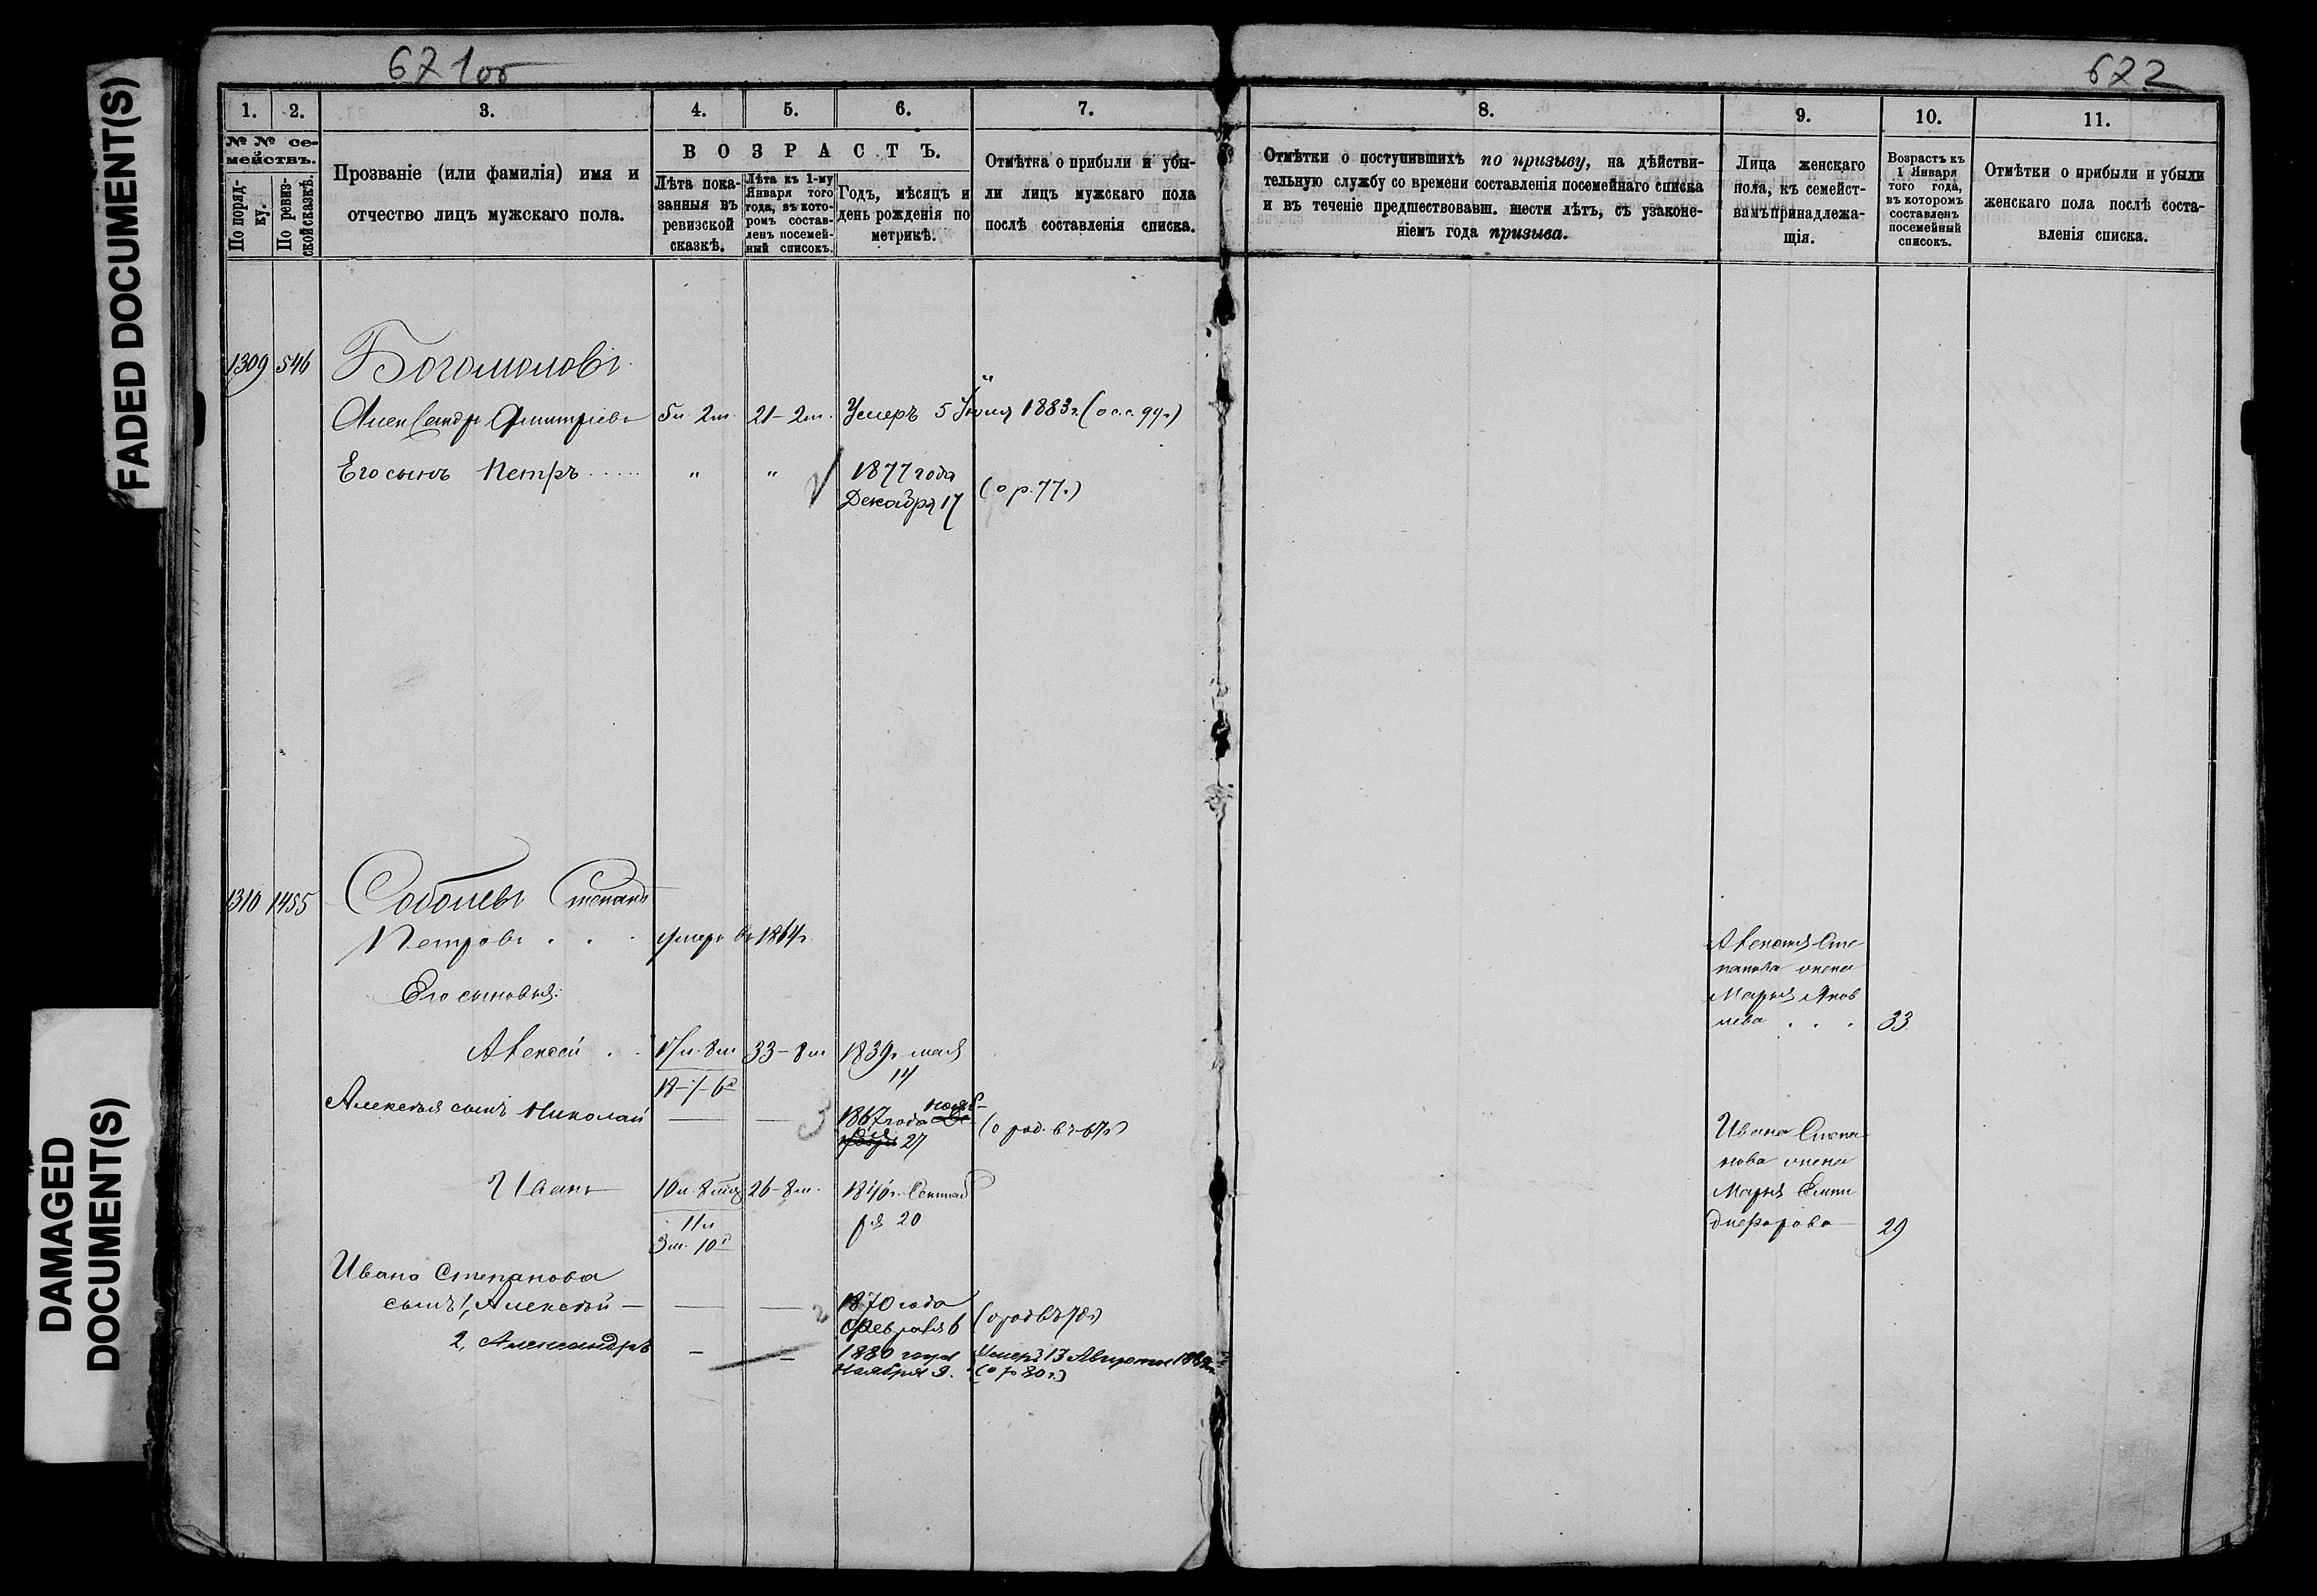 FADED DOCUMENT(S)
DAMAGED
DOCUMENT(S)
671об
622
1.
2.
3.
4.
5.
6.
7.
8.
9.
10.
11.
№ № се-
мействъ.
По поряд-
ку.
По ревиз-
ской сказкѣ.
Прозваніе (или фамилія) имя и
отчество лицъ мужскаго пола.
ВОЗРАСТЪ.
Лѣта пока-
занныя въ
ревизской
сказкѣ.
Лѣта къ 1-му
Января того
года, въ кото-
ромъ состав-
ленъ посемей-
ный списокъ.
Годъ, мѣсяцъ и
день рожденія по
метрикѣ.
Отмѣтка о прибыли и убы-
ли лицъ мужскаго пола
послѣ составленія списка.
Отмѣтки о поступившихъ по призыву, на дѣйстви-
тельную службу со времени составленія посемейнаго списка
и въ теченіе предшествовавш. шести лѣтъ, съ узаконе-
ніемъ года призыва.
Лица женскаго
пола, къ семейст-
вамъ принадлежа-
щія.
Возрастъ къ
1 Января
того года,
въ которомъ
составленъ
посемейный
списокъ.
Отмѣтки о прибыли и убыли
женскаго пола послѣ соста-
вленія списка.
1309 546 Богомоловъ
Александръ Дмитріевъ 5л. 2м. 21-2м. Умеръ 5 Іюня 1883г.
Его сынъ Петръ " " 1877 года
Декабря 17 (о р. 77г.)
1310 1455 Соболевъ Степанъ
Петровъ . . . умеръ въ 1864г.
Его сыновья:
Алексѣй . . 17л. 8м. 33-8м 1839г. мая
14
Алексѣя сынъ Николай — — 1867 года нояб-
ря 27 (о род. въ 67г.)
Иванъ 10л. 8м. 26-8м. 1846г. Сентяб
ря 20
11л
3м. 10д
Ивана Степанова
сынъ 1, Алексѣй — — — 1870 года
Февраля 6 (о род въ 70г)
2, Александръ - - 1880 года
Ноября 9. Умеръ 13 Августа
(о р 80г.)
Алексѣя Сте
панова жена
Марья Яков
лева . . . 33
Ивана Степа
нова жена
Марья Елпи
дифорова 29